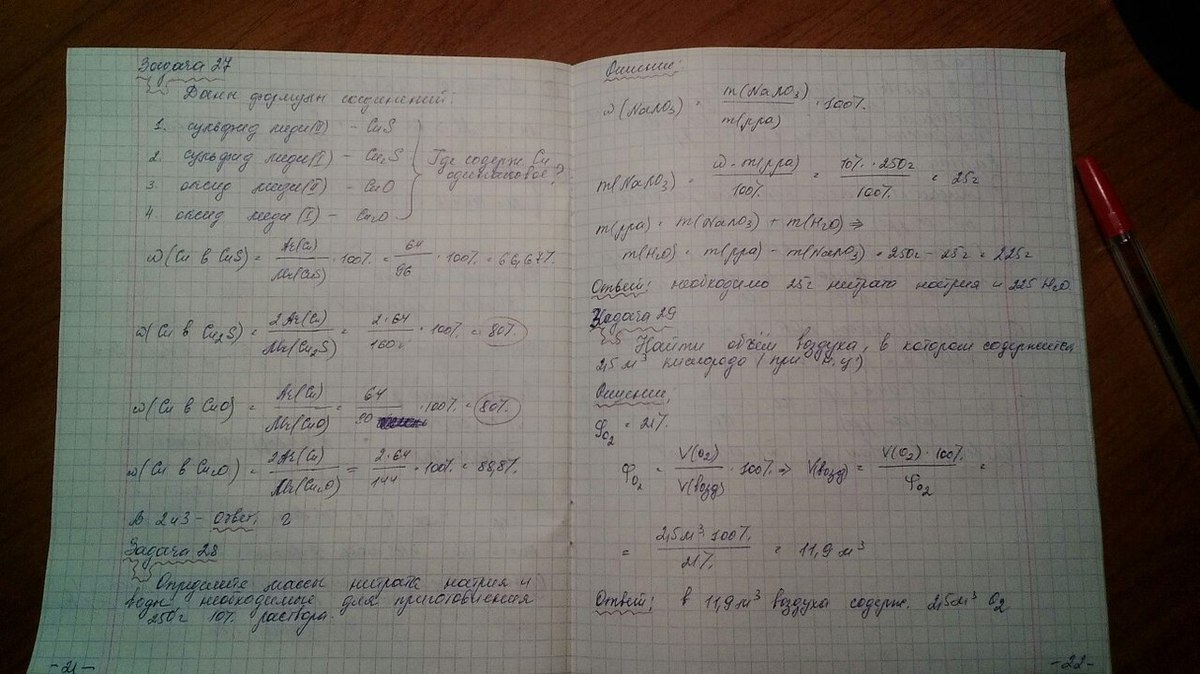 Задача 27
Даны формулы соединений:
1. сульфид меди (II) – CuS
2. сульфид меди (I) – Cu₂S
3. оксид меди (II) – CuO
4. оксид меди (I) – Cu₂O
Где содерж. Cu
одинаковое?
ω(Cu в CuS) = Ar(Cu)/Mr(CuS) · 100% = 64/96 · 100% = 66,67%.
ω(Cu в Cu₂S) = 2Ar(Cu)/Mr(Cu₂S) = 2·64/160 · 100% = 80%.
ω(Cu в CuO) = Ar(Cu)/Mr(CuO) = 64/80 · 100% = 80%.
ω(Cu в Cu₂O) = 2Ar(Cu)/Mr(Cu₂O) = 2·64/144 · 100% = 88,8%
В 2 и 3 – Ответ:
Задача 28
Определите массы нитрата натрия и
воды необходимые для приготовления
250г 10% раствора.
-21-
Описание:
ω(NaNO₃) = m(NaNO₃)/m(рра) · 100%.
m(NaNO₃) = ω · m(рра)/100% = 10% · 250г/100% = 25г
m(рра) = m(NaNO₃) + m(H₂O) ⇒
m(H₂O) = m(рра) – m(NaNO₃) = 250г – 25г = 225г
Ответ: необходимо 25г нитрата натрия и 225 H₂O
Задача 29
Найти объём воздуха, в котором содержится
2,5 м³ кислорода (при н.у.)
Описание:
φO₂ = 21%.
φO₂ = V(O₂)/V(возд) · 100% ⇒ V(возд) = V(O₂) · 100%/φO₂ =
= 2,5м³ · 100%/21% = 11,9 м³
Ответ: в 11,9 м³ воздуха содерж. 2,5м³ O₂
-22-